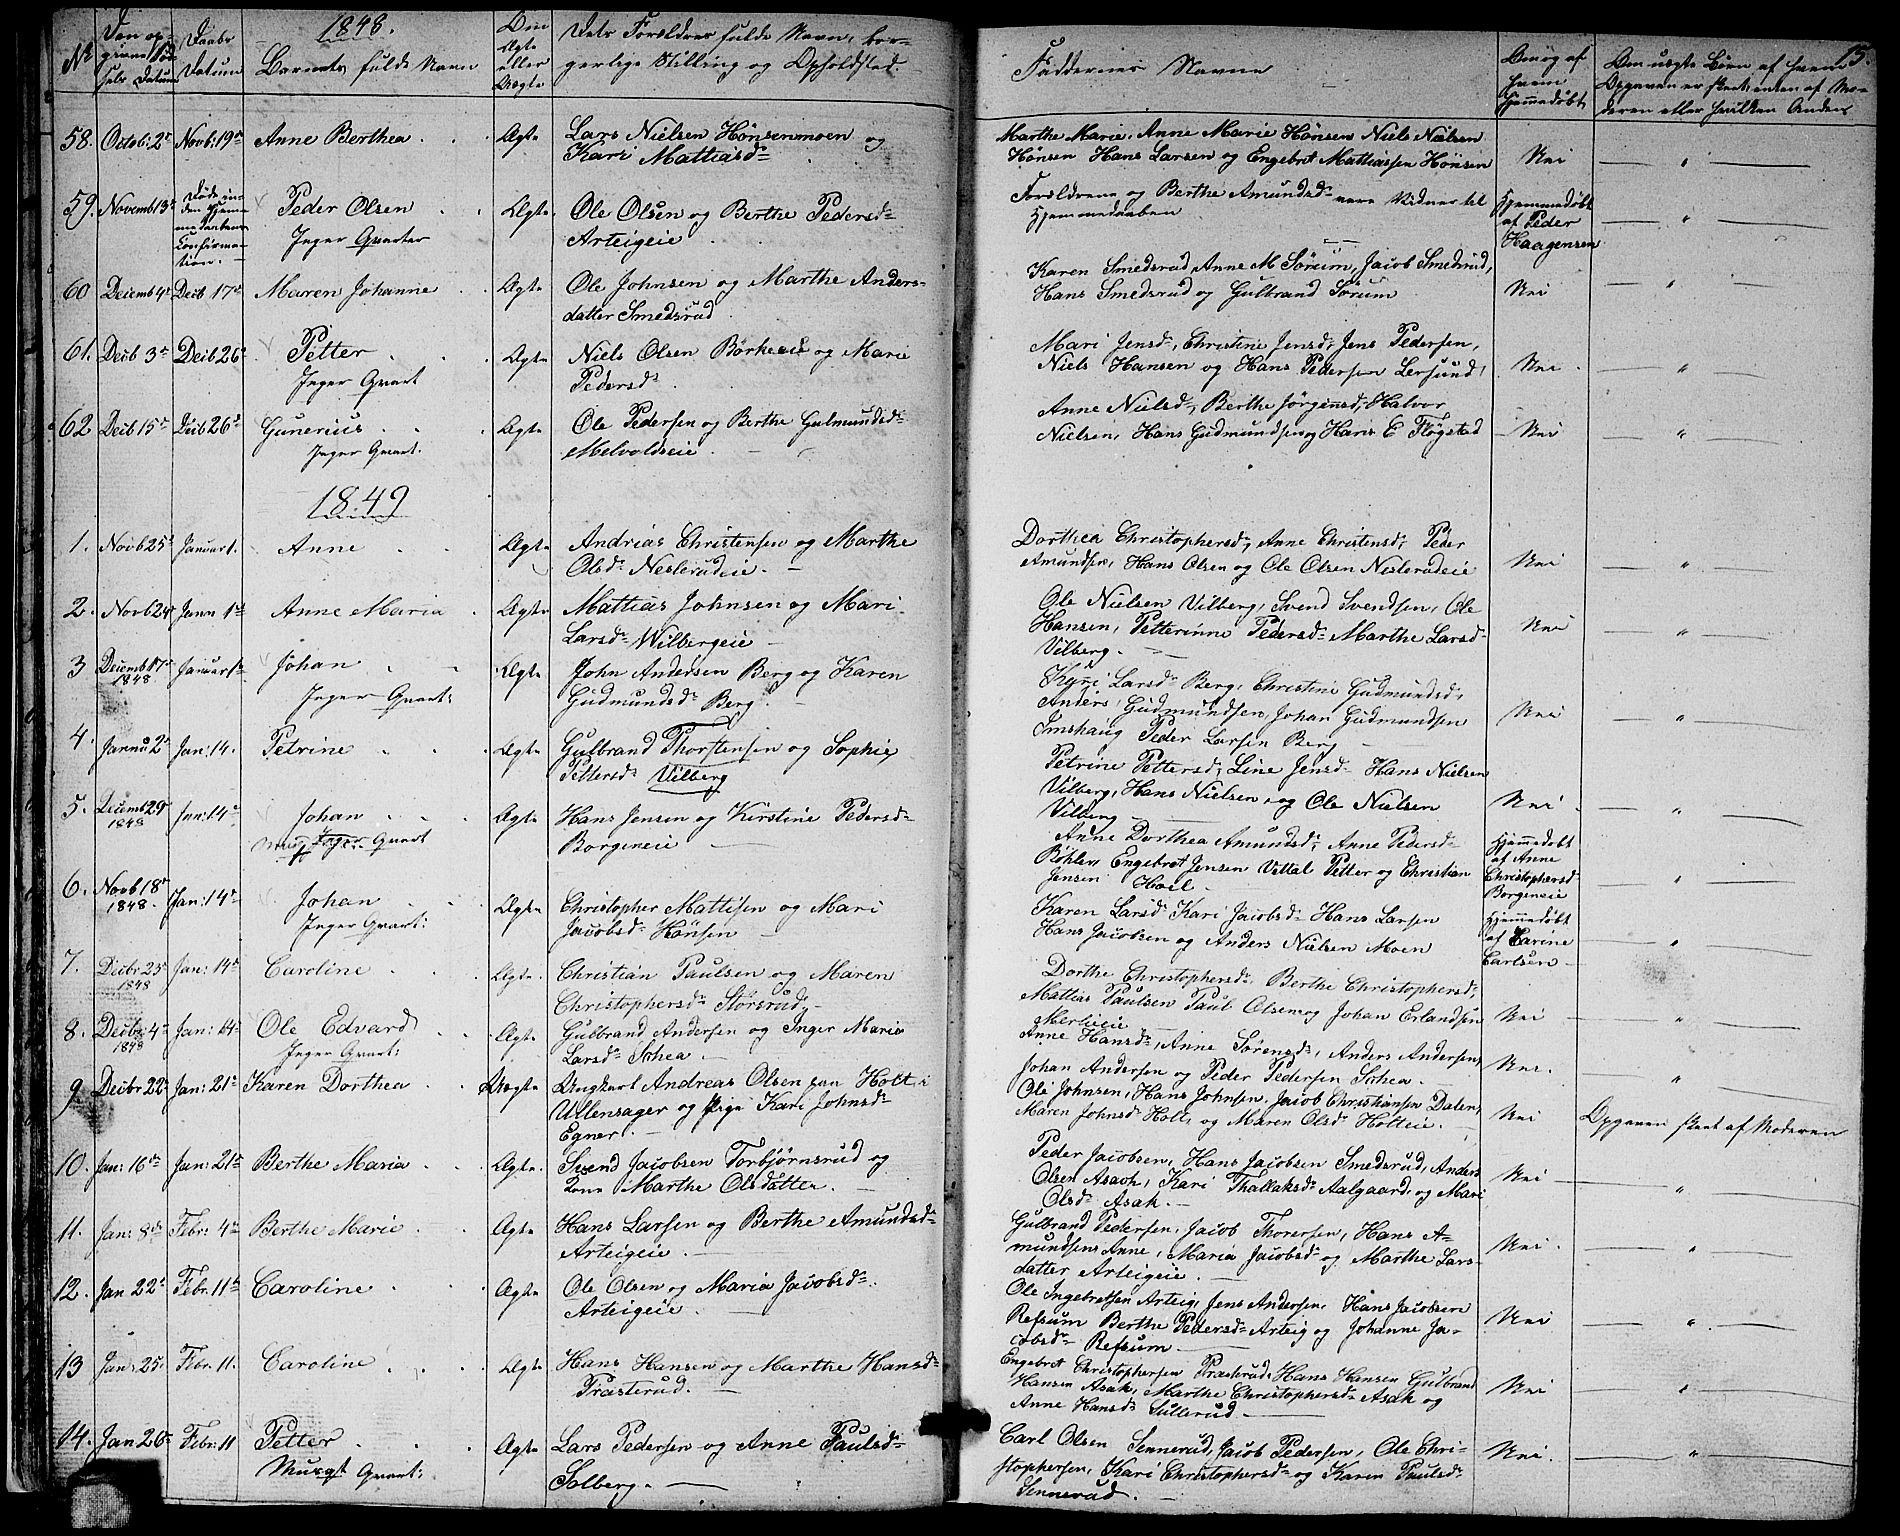 15.
1848.
№
Den op-
givne Fød-
sels Datum
Daabs
Datum
Barnets fulde Navn
Om
Ægte
eller
Uægte
Dets Forældres fulde Navn, bor-
gerlige Stilling og Opholdsted.
Faddernes Navne
Om og af
hvem
hjemmedøbt
Om uægte Børn af hvem
Opgaven er skeet, enten af Mo-
deren eller hvilken Anden
58. Octob: 2d Novb: 19d Anne Berthea Ægte Lars Nielsen Hønsenmoen og
Kari Mathiasd:
Marthe Marie, Anne Marie Hønsen Niels Nielsen
Hønsen Hans Larsen og Engebret Mathiassen Hønsen
Nei "
59. Novemb 13d Døde in-
den Hjem-
medaabens
Confirma-
tion. Peder Olsen
Inger Qvarter
Ægte Ole Olsen og Berthe Pedersd:
Arteigeie
Forældrene og Berthe Amundsd: vare Vidner til
Hjemmedaaben
Hjemmedøbt
af Peder
Haagensen "
60 Decemb 4d Decb 17d Maren Johanne Ægte Ole Johnsen og Marthe Anders-
datter Smedsrud
Karen Smedsrud, Anne M Sørum, Jacob Smedsrud,
Hans Smedsrud og Gulbrand Sørum
Nei "
61. Decb 3d Decb 26d Petter
Inger Qvart
Ægte Niels Olsen Børkeeie og Marie
Pedersd:
Mari Jensd:, Christine Jensd:, Jens Pedersen,
Niels Hansen og Hans Pedersen Lersund,
Nei "
62 Decb 15d Decb 26d Gunerius
Inger Qvart.
Ægte Ole Pedersen og Berthe Gulmundsd:
Melvoldseie
Anne Nielsd:, Berthe Jørgensd:, Halvor
Nielsen, Hans Gudmundsen og Hans E Fløgstad
Nei "
1849
1. Novb 25d Januar 1. Anne Ægte Andrias Christensen og Marthe
Olsd: Neslerudeie
Dorthea Christophersd:, Anne Christensd:, Peder
Amundsen, Hans Olsen og Ole Olsen Neslerudeie
Nei "
2. Novb 24d Janu 1d Anne Maria Ægte Mattias Johnsen og Mari
Larsd: Wilbergeie
Ole Nielsen Vilberg, Svend Svendsen, Ole
Hansen, Petterinne Pedersd: Marthe Larsd:
Vilberg.
Nei "
3 Decemb 17d
1848 Januar 1d Johan
Inger Qvart:
Ægte John Andersen Berg og Karen
Gudmundsd: Berg.
Kari Larsd: Berg, Christine Gudmundsd:,
Anders Gudmundsen, Johan Gudmundsen
Imshaug Peder Larsen Berg
Nei "
4. Janu 2d Jan: 14. Petrine Ægte Gulbrand Thorstensen og Sophie,
Pettersd: Vilberg
Petrine Pettersd:, Line Jensd: Hans Nielsen
Vilberg, Hans Nielsen, og Ole Nielsen
Vilberg
Nei "
5. Decemb 29d
1848 Jan: 14d Johan
Inger Qvart
Ægte Hans Jensen og Kirstine Pedersd:
Borgeneie
Anne Dorthea Amundsd:, Anne Pedersd:
Bøhler, Engebret Jensen Vettal Petter og Christian
Jensen Hoel.
Hjemmedøbt
af Anne
Christophersd:
Borgeneie "
6. Novb 18d
1848. Jan: 14d Johan
Inger Qvart:
Ægte Christopher Mattisen og Mari
Jacobsd: Hønsen
Karen Larsd: Kari Jacobsd: Hans Larsen
Hans Jacobsen og Anders Nielsen Moen
Hjemmedøbt
af Carine
Carlsen "
7. Decbr 25d
1848 Jan: 14d Caroline Ægte Christian Paulsen og Maren
Christophersd: Storsrud
Dorthe Christophersd: Berthe Christophersd:,
Mattias Paulsen Paul Olsen og Johan Erlandsen
Merlieie
Nei "
8. Decbr 4d
1848 Jan: 14d Ole Edvard
Inger Qvart:
Ægte Gulbrand Andersen og Inger Marie
Larsd: Schea
Anne Hansd:, Anne Sørensd:, Anders Andersen,
Johan Andersen og Peder Pedersen Schea
Nei. "
9. Decbr 22d Jan: 21d Karen Dorthea Uægte Ungkarl Andreas Olsen paa Holt i
Ullensager og Pige Kari Johnsd:
Egner.
Ole Johnsen, Hans Johnsen, Jacob Christiansen Dalen,
Maren Johnsd: Holt, og Maren Olsd: Holteie.
Nei Opgaven skeet af Moderen
10. Jan: 16d Jan: 21d Berthe Maria Ægte. Svend Jacobsen Torbjørnsrud og
Kone Marthe Olsdatter.
Peder Jacobsen, Hans Jacobsen Smedsrud, Anders
Olsen Asach, Kari Thallaksd: Aalgaard, og Mari
Olsd: Asak.
Nei "
11. Jan: 8d Febr: 4d Berthe Marie Ægte Hans Larsen og Berthe Amundsd:
Arteigeie.
Gulbrand Pedersen, Jacob Thorersen, Hans A-
mundsen, Anne, Maria Jacobsd: og Marthe Lars-
datter Arteigeie.
Nei "
12. Jan 22d Febr. 11d Caroline Ægte Ole Olsen og Maria Jacobsd:
Arteigeie.
Ole Ingebretsen Arteig, Jens Andersen, Hans Jacobsen
Refsum Berthe Pedersd: Arteig og Johanne Ja-
cobsd: Refsum.
Nei "
13 Jan: 25. Febr. 11. Caroline Ægte Hans Hansen og Marthe Hansd:
Træsterud.
Engebret Christophersen Præsterud, Hans Hansen Gulbrand
Hansen Asak, Marthe Christophersd: Asak og
Anne Hansd: Sullerud
Nei "
14. Jan 26d Febr: 11 Petter
Murgt Qvart:
Ægte Lars Pedersen og Anne Paulsd:
Solberg.
Carl Olsen Sennerud, Jacob Pedersen, Ole Chri-
stophersen, Kari Christophersd: og Karen Paulsd:
Sennerud.
Nei. "